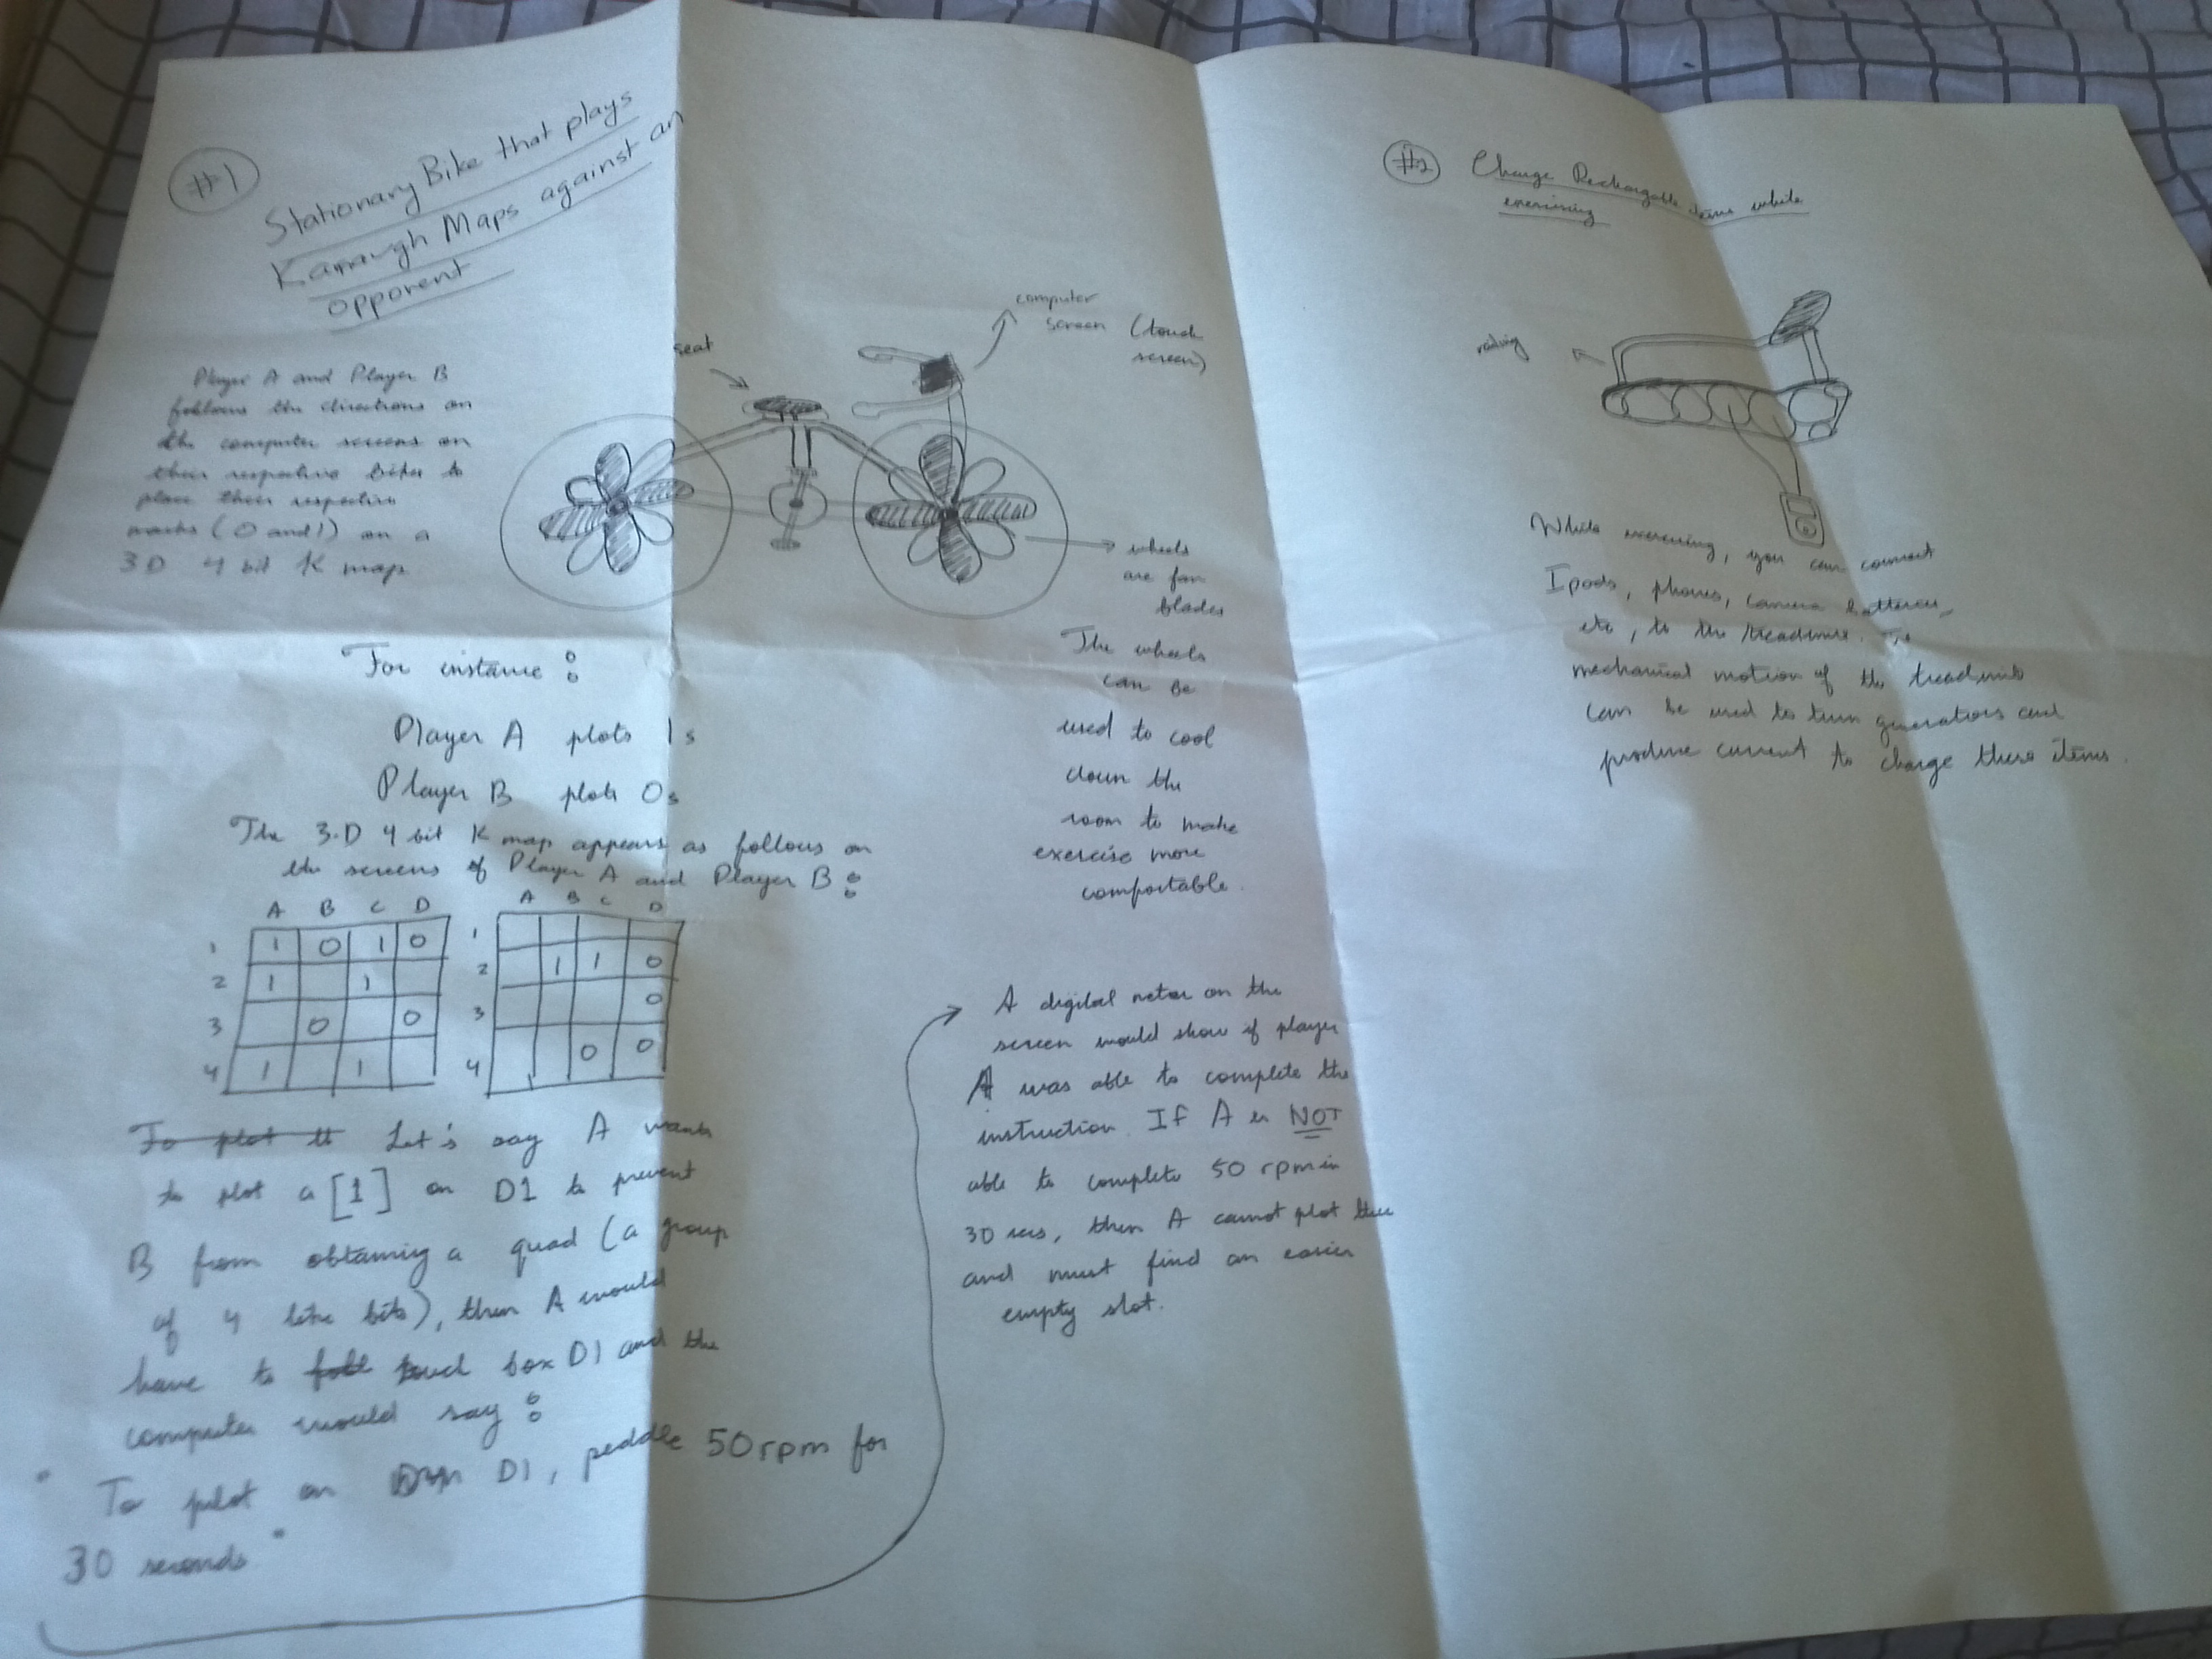 #1
Stationary Bike that plays
Karnaugh Maps against an
opponent
Player A and Player B
follows the directions on
the computer screens on
their respective bikes to
place their respective
marks (0 and 1) on a
3D 4 bit K map
seat
computer
screen (touch
screen)
wheels
are fan
blades
The wheels
can be
used to cool
down the
room to make
exercise more
comfortable.
For instance :
Player A plots 1s
Player B plots 0s
The 3-D 4 bit K map appears as follows on
the screens of Player A and Player B :
A B C D
1 1 0 1 0
2 1 1
3 0 0
4 1 1
A B C D
1
2 1 1 0
3 0
4 0 0
To plot tt Let's say A wants
to plot a [1] on D1 to prevent
B from obtaining a quad (a group
of 4 like bits), then A would
have to touch box D1 and the
computer would say :
"To plot on D1, peddle 50 rpm for
30 seconds"
A digital meter on the
screen would show if player
A was able to complete the
instruction. If A is NOT
able to complete 50 rpm in
30 secs, then A cannot plot there
and must find an easier
empty slot.
#2
Charge Rechargable items while
exercising
railing
While exercising, you can connect
Ipods, phones, camera batteries,
etc, to the treadmill. The
mechanical motion of the treadmill
can be used to turn generators and
produce current to charge these items.